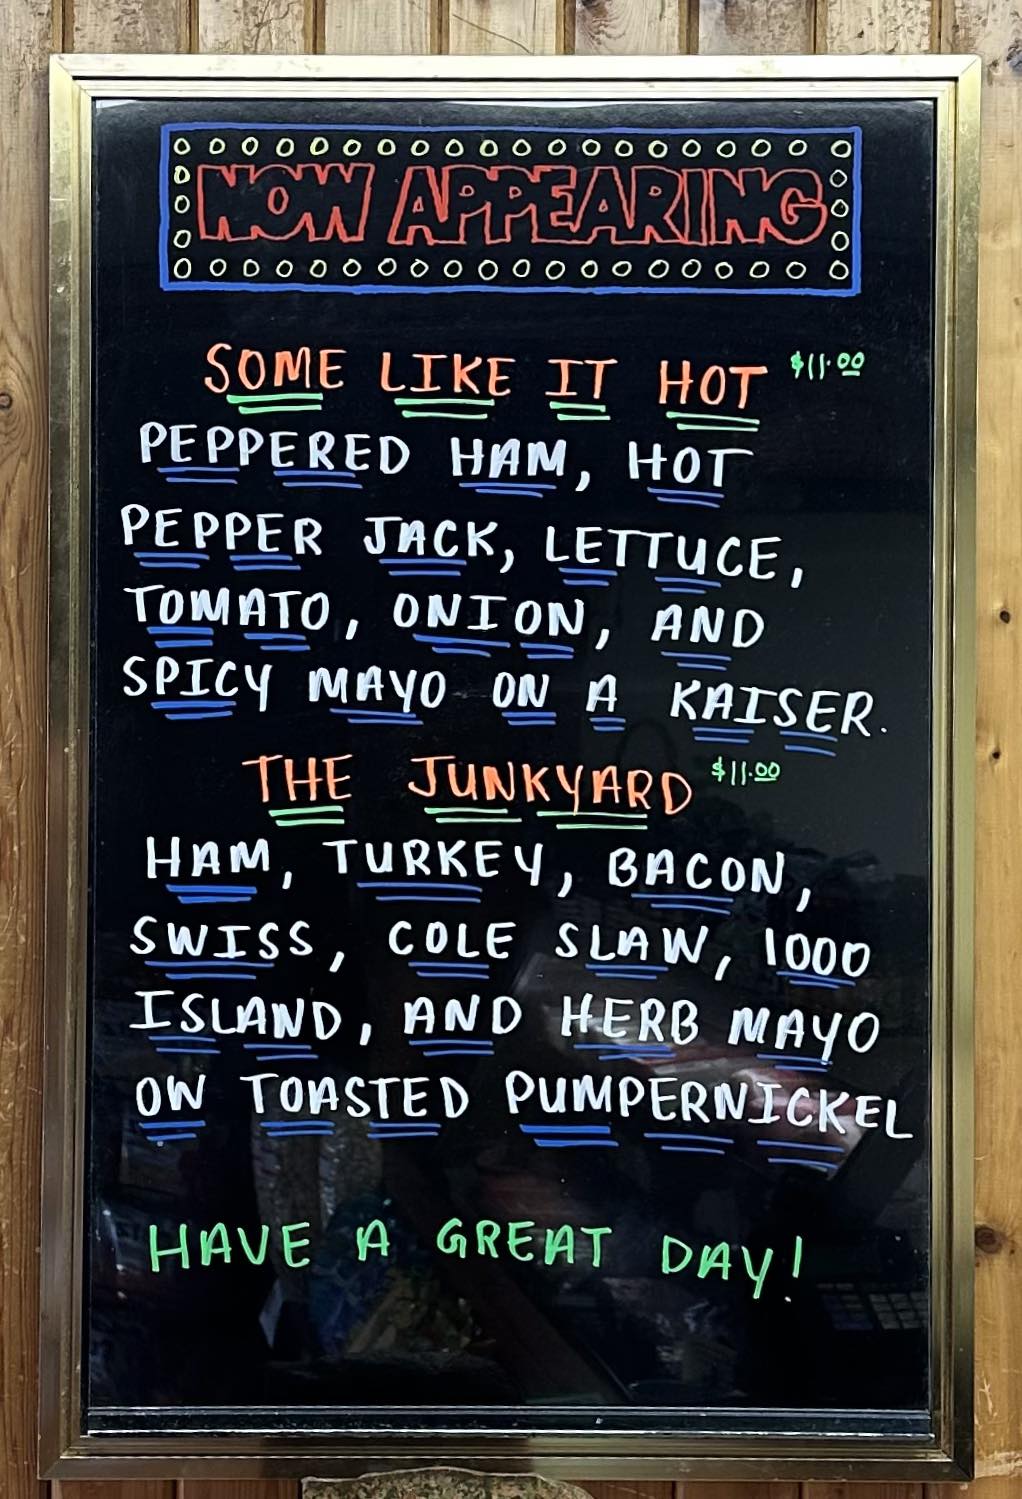 NOW APPEARING
SOME LIKE IT HOT $11.00
PEPPERED HAM, HOT
PEPPER JACK, LETTUCE,
TOMATO, ONION, AND
SPICY MAYO ON A KAISER.
THE JUNKYARD $11.00
HAM, TURKEY, BACON,
SWISS, COLE SLAW, 1000
ISLAND, AND HERB MAYO
ON TOASTED PUMPERNICKEL
HAVE A GREAT DAY!